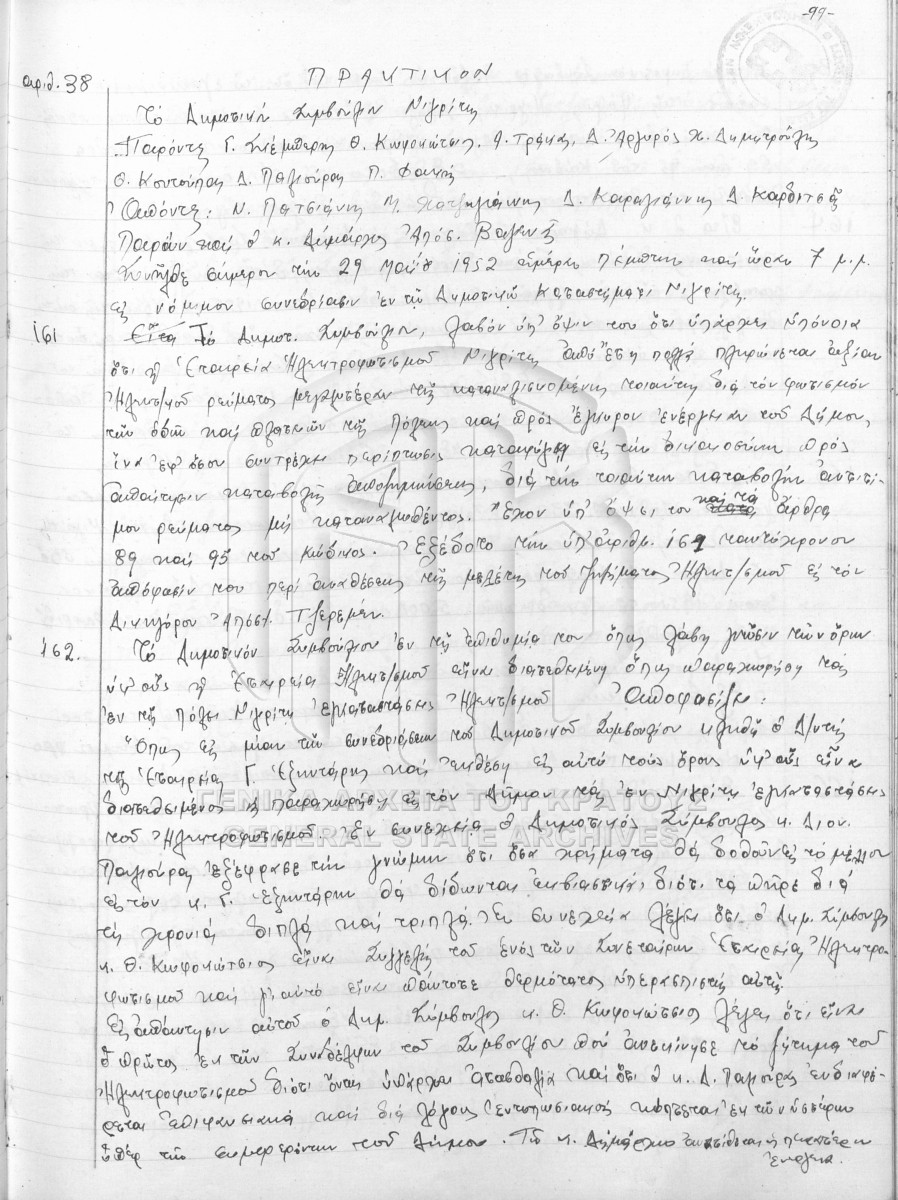 -99-
αριθ. 38
ΠΡΑΚΤΙΚΟΝ
Τό Δημοτικόν Συμβούλιον Νιγρίτης
Παρόντες Γ. Θ. Κωφοκώτσιος, Δ. Ἀργυρός Χ. Δημητρούλης
Θ. Κουτούπας Δ. Παλιούρας Π.
Ἀπόντες: Ν. Πατσιάνης Μ. Χατζηγιάννης Δ. Καραγιάννης Δ. Καρδιτσᾶς
Παρών καί ὁ κ. Δήμαρχος Ἀπόσ.
Συνῆλθε σήμερον τήν 29 Μαΐου 1952 ἡμέραν Πέμπτην καί ὥραν 7 μ.μ.
εἰς νόμιμον συνεδρίασιν ἐν τῷ Δημοτικῷ Καταστήματι Νιγρίτης.
161
Εἶτα Τό Δημοτ. Συμβούλιον, λαβόν ὑπ' ὄψιν του ὅτι ὑπάρχει ὑπόνοια
ὅτι ἡ Ἑταιρεία Ἠλεκτροφωτισμοῦ Νιγρίτης ἀπό ἔτη πολλά πληρώνεται ἀξίαν
Ἠλεκτ/κοῦ ρεύματος μεγαλυτέραν τῆς καταναλισκομένης τοιαύτης διά τόν φωτισμόν
τῶν ὁδῶν καί πλατειῶν τῆς Πόλεως καί πρός ἔγκυρον ἐνέργειαν τοῦ Δήμου,
ἵνα ἐφ' ὅσον συντρέχη περίπτωσις καταφύγη εἰς τήν δικαιοσύνην πρός
ἀπαίτησιν καταβολῆς ἀποζημιώσεως, διά τήν τοιαύτην καταβολήν ἀντιτί-
μου ρεύματος μή καταναλωθέντος. Ἔχον ὑπ' ὄψει του καί τά ἄρθρα
89 καί 95 τοῦ κώδικος. Ἐξέδοτο τήν ὑπ' ἀριθμ. 161 ταυτόχρονον
ἀπόφασίν του περί ἀναθέσεως τῆς μελέτης τοῦ ζητήματος Ἠλεκτ/σμοῦ εἰς τόν
Δικηγόρον Ἀποστ. Τζερεμέν.
162.
Τό Δημοτικόν Συμβούλιον ἐν τῇ ἐπιθυμίᾳ του ὅπως λάβη γνῶσιν τῶν ὅρων
ὑφ' οὕς ἡ Ἑταιρεία Ἠλεκτ/σμοῦ εἶναι διατεθειμένη ὅπως παραχωρήση τάς
ἐν τῇ Πόλει Νιγρίτης ἐγκαταστάσεις Ἠλεκτ/σμοῦ Ἀποφασίζει:
Ὅπως εἰς μίαν τῶν συνεδριάσεων τοῦ Δημοτικοῦ Συμβουλίου κληθῆ ὁ Δ/ντής
τῆς Ἑταιρείας Γ. Ἐξηντάρης καί ἐκθέση εἰς αὐτό τούς ὅρους ὑφ' οὕς εἶναι
διατεθειμένος νά παραχωρήση εἰς τόν Δῆμον τάς ἐν Νιγρίτη ἐγκαταστάσεις
τοῦ Ἠλεκτροφωτισμοῦ. Ἐν συνεχείᾳ ὁ Δημοτικός Σύμβουλος κ. Διον.
Παλιούρας ἐξέφρασε τήν γνώμην ὅτι ὅσα χρήματα θά δοθοῦν εἰς τό μέλλον
εἰς τόν κ. Γ. Ἐξηντάρην θά δίδωνται ἐκβιαστικῶς, διότι τά πῆρε διά
τίς χρονιά διπλά καί τριπλά. Ἐν συνεχείᾳ λέγει ὅτι ὁ Δημ. Σύμβουλος
κ. Θ. Κωφοκώτσιος εἶναι Συγγενής τοῦ ἑνός τῶν Συνεταίρων Ἑταιρείας Ἠλεκτρο-
φωτισμοῦ καί γι' αὐτό εἶναι πάντοτε θερμότατος ὑπερασπιστής αὐτῆς.
Εἰς ἀπάντησιν αὐτοῦ ὁ Δημ. Σύμβουλος κ. Θ. Κωφοκώτσιος λέγει ὅτι εἶναι
ὁ πρῶτος ἐκ τῶν Συναδέλφων τοῦ Συμβουλίου πού ἀνεκίνησε τό ζήτημα τοῦ
Ἠλεκτροφωτισμοῦ διότι ὄντως ὑπάρχει ἀτασθαλία καί ὅτι ὁ κ. Δ. Παλιούρας ἐνδιαφέ-
ρεται ἐπιφανειακά καί διά λόγους ἐντυπωσιασμοῦ κόπτεται
ὑπέρ τῶν συμφερόντων τοῦ Δήμου. Τῷ κ. Δημάρχῳ ἀνατίθεται ἡ περαιτέρω
ἐνέργεια.
ΓΕΝΙΚΑ ΑΡΧΕΙΑ ΤΟΥ ΚΡΑΤΟΥΣ
GENERAL STATE ARCHIVES